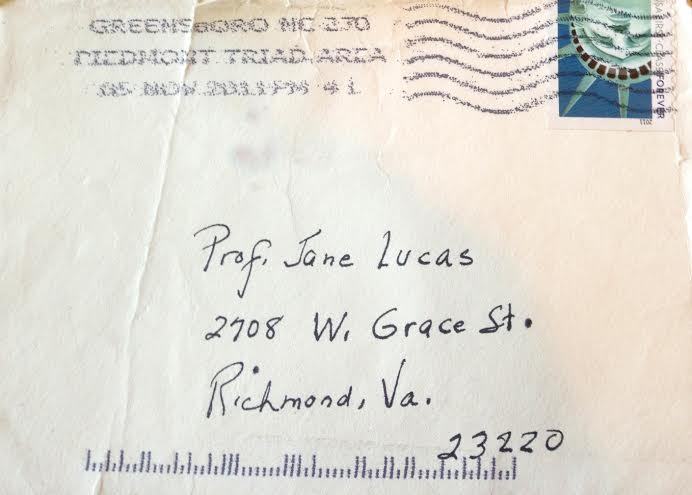 GREENSBORO NC 270
PIEDMONT TRIAD AREA
05 NOV 2011 PM 4 L
FOREVER
2011
Prof. Jane Lucas
2708 W. Grace St.
Richmond, Va.
23220